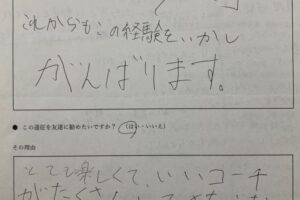 これからもこの経験をいかし
がんばります。
● この遠征を友達に勧めたいですか？（はい・いいえ）
その理由
とても楽しくて、いいコーチ
がたくさん